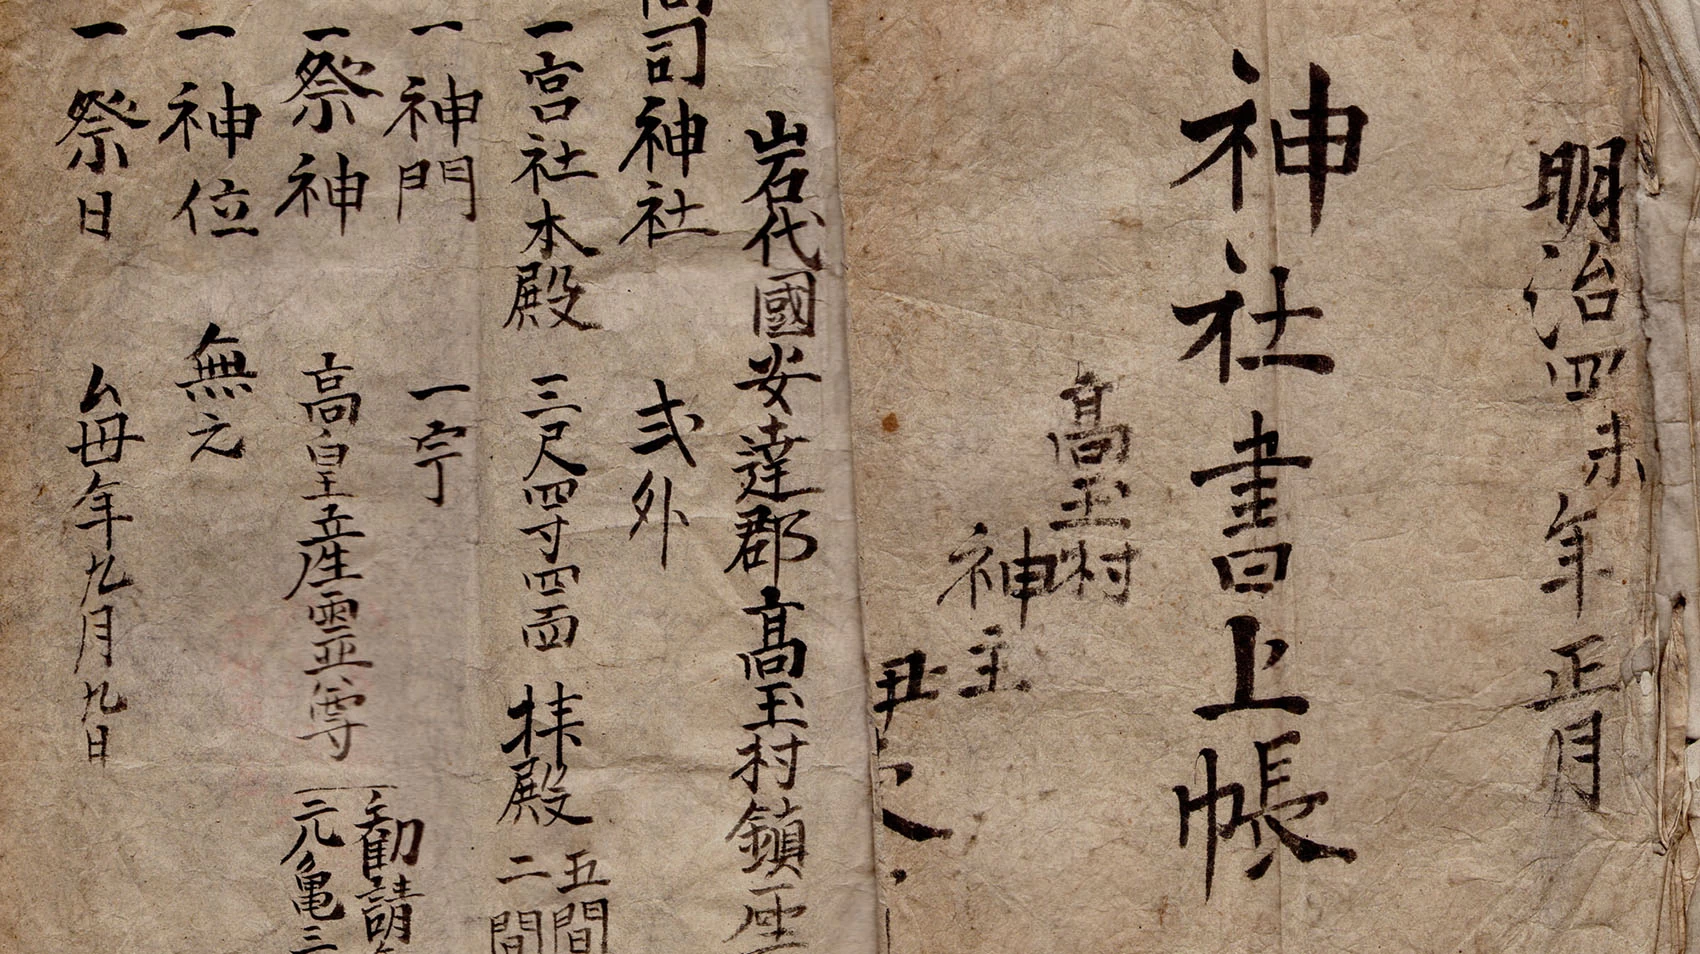 明治四未年正月
神社書上帳
高玉村
神主
岩代國安達郡高玉村鎮座
司神社 弐外
一宮社本殿 三尺四寸四面 拝殿 五間
二間
一神門 一宇
一祭神 高皇産霊尊 勧請
元亀三
一神位 無之
一祭日 毎年九月九日